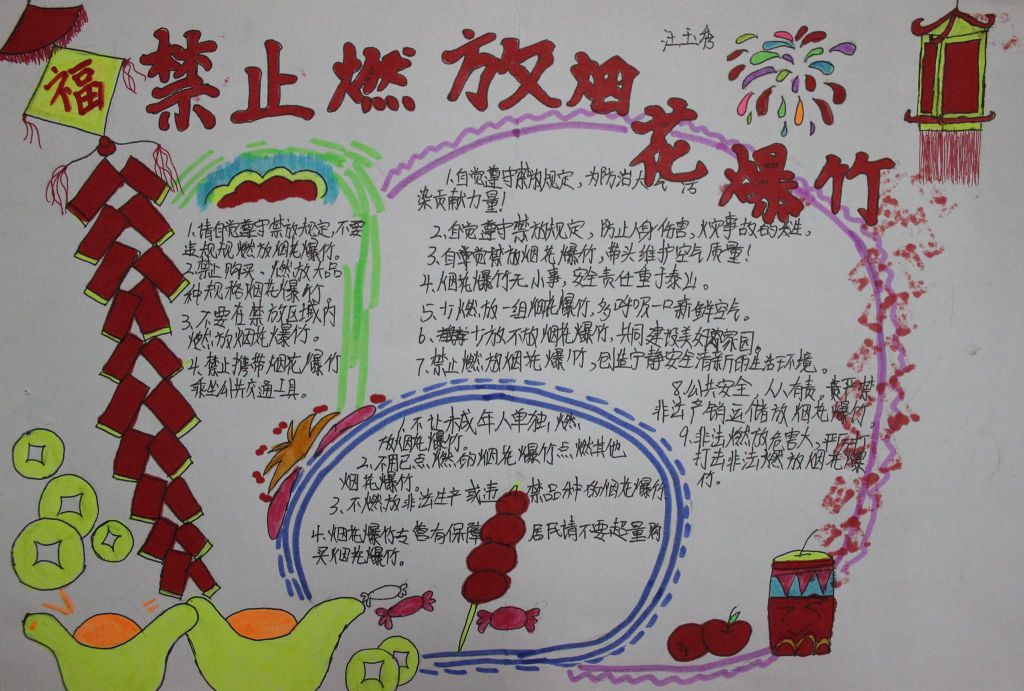 福
禁止燃放烟花爆竹
汪玉秀
1.请自觉遵守禁放规定,不要
违规规燃放烟花爆竹。
2.禁止购买、燃放大品
种规格烟花爆竹
3.不要在禁放区域内
燃放烟花爆竹。
4.禁止携带烟花爆竹
乘坐公共交通工具。
1.自觉遵守禁放规定,为防治大
染贡献力量!
2.自觉遵守禁放规定,防止人身伤害,火灾事故的发生,
3.自觉禁放烟花爆竹,带头维护空气质量!
4.烟花爆竹无小事,安全责任重于泰山。
5.少燃放一组烟花爆竹,多呼吸一口新鲜空气。
6.少放不放烟花爆竹,共同建设美好家园。
7.禁止燃放烟花爆竹,创造宁静安全清新的生活环境。
8.公共安全,人人有责。严禁
非法产销运储放烟花爆竹,
9.非法燃放危害大,严厉打
打击非法燃放烟花爆
竹。
1.不让未成年人单独,燃
放烟花爆竹。
2.不用已点燃的烟花爆竹点燃其他
烟花爆竹。
3.不燃放非法生产或违禁品种的烟花爆竹
4.烟花爆竹专营有保障 居民请不要超量购
买烟花爆竹。